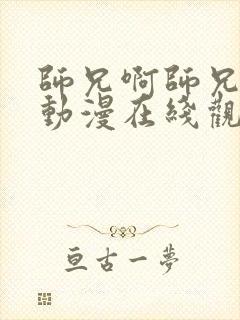 師兄啊師兄
動漫在綫觀
亘古一夢